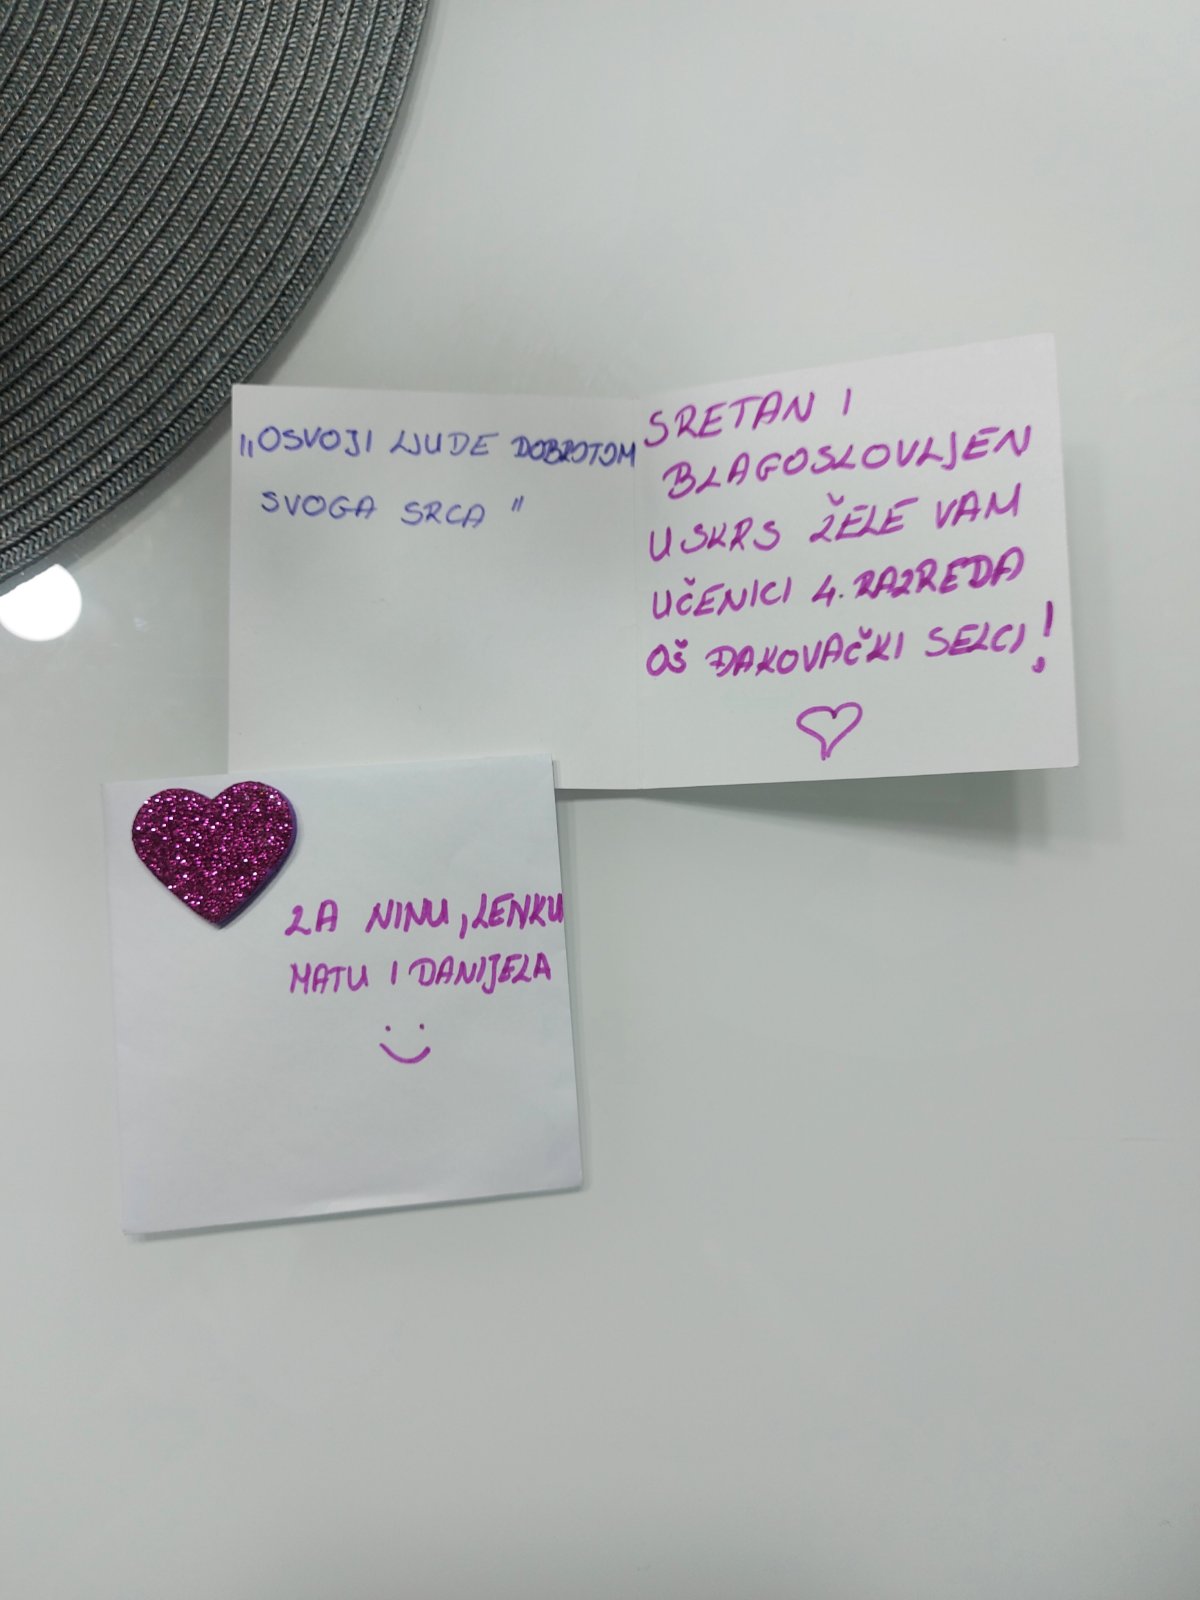 „OSVOJI LJUDE DOBROTOM
SVOGA SRCA"
SRETAN I
BLAGOSLOVLJEN
USKRS ŽELE VAM
UČENICI 4. RAZREDA
OŠ ĐAKOVAČKI SELCI!
ZA NINU, LENKU
MATU I DANIJELA